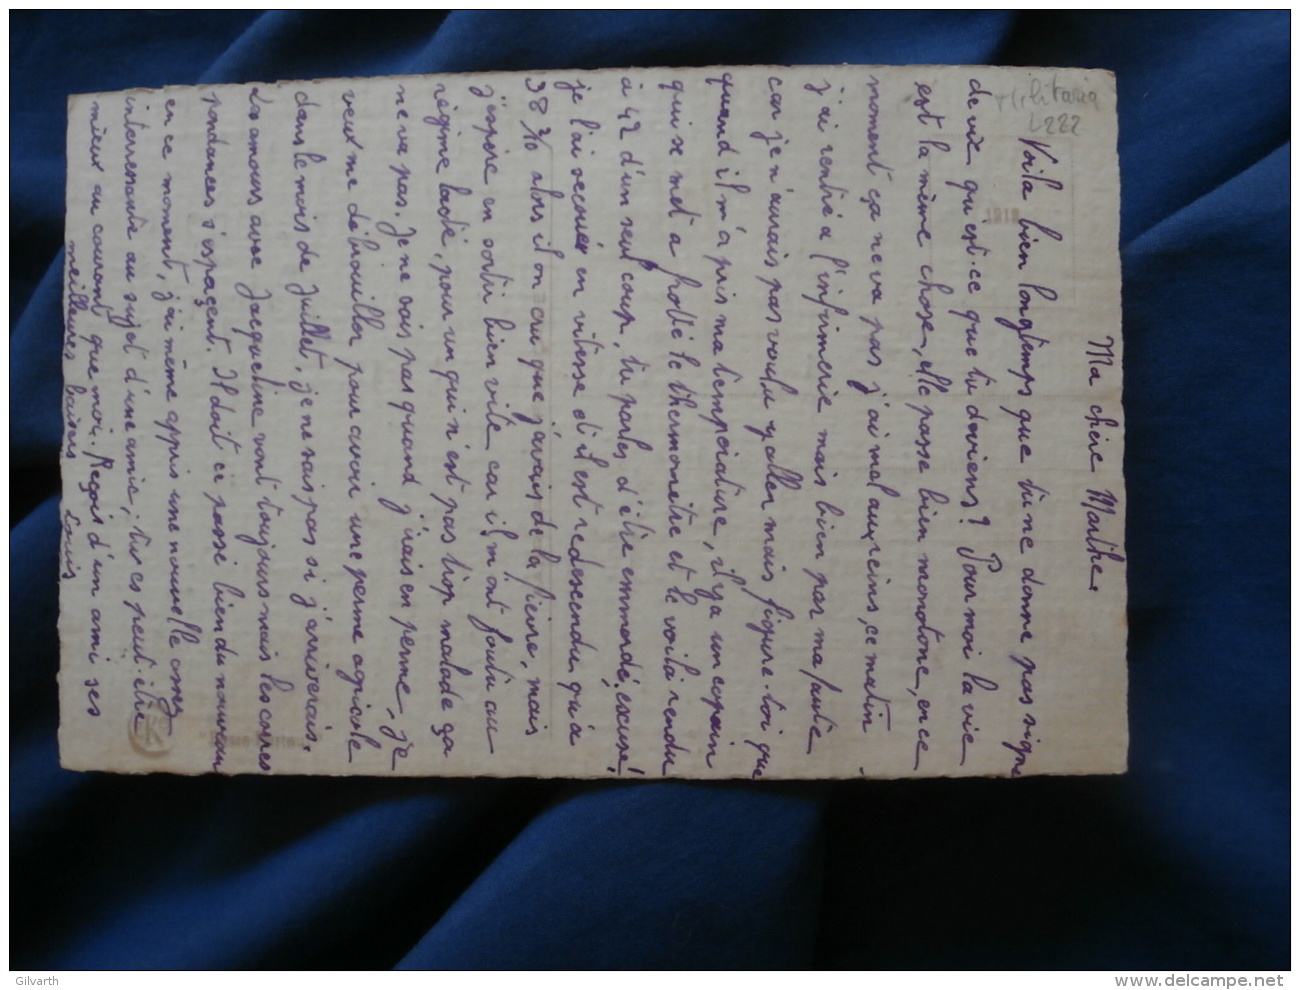 Militaria
L222
Ma chère Mathe
Voila bien longtemps que tu ne donne pas signe
de vie qu'est-ce que tu deviens? Pour moi la vie
est la même chose, elle passe bien monotone, en ce
moment ça ne va pas j'ai mal aux reins, ce matin
j'ai rentré a l'infirmerie mais bien par ma faute
car je n'aurais pas voulu y aller mais figure-toi que
quand il m'a pris ma température, il y a un copain
qui se met a frotté le thermomètre et le voila rendu
à 42 d'un seul coup, tu parles d'être emmerdé, excuse!
je l'ai secouer en vitesse et il est redescendu qu'à
38 2/10 alors il on cru que j'avais de la fièvre, mais
j'espère en sortir bien vite car il m'ont foutu au
régime lacté, pour un qui n'est pas trop malade ça
ne va pas. Je ne sais pas quand j'irais en perme, je
veux me débrouiller pour avoir une perme agricole
dans le mois de Juillet, je ne sais pas si j'arriverais.
Les amours avec Jacqueline vont toujours mais les corres
pondances s'espaçent. Il doit ce passé bien du nouveau
en ce moment, j'ai même appris une nouvelle assez
interressante au sujet d'une amie, tu es peut-être
mieux au courant que moi. Reçois d'un ami ses
meilleures baisers Louis
Gilvarth
www.delcampe.net